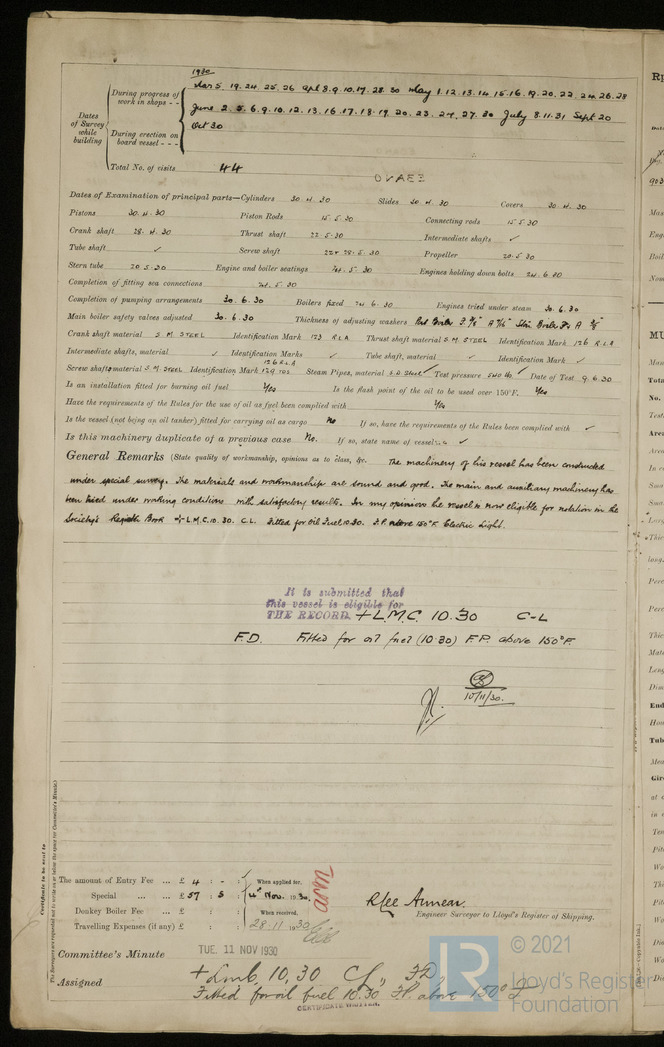 1930
Mar 5. 19. 24 25. 26 Apl 8. 9. 10. 17. 28. 30 May 1. 12. 13. 14. 15. 16. 19. 20. 22. 24. 26. 28
During progress of work in shops - -
June 2. 5. 6. 9. 10. 12. 13. 16. 17. 18. 19. 20. 23. 24. 27. 30 July 8. 11. 31 Sept 20
Dates of Survey while building
During erection on board vessel - - -
Oct 30
Total No. of visits 44
Dates of Examination of principal parts—Cylinders 30. 4. 30 Slides 30. 4. 30 Covers 30. 4. 30
Pistons 30. 4. 30 Piston Rods 15. 5. 30 Connecting rods 15. 5. 30
Crank shaft 28. 4. 30 Thrust shaft 22. 5. 30 Intermediate shafts ✓
Tube shaft ✓ Screw shaft 28. 5. 30 Propeller 20. 5. 30
Stern tube 20. 5. 30 Engine and boiler seatings 24. 5. 30 Engines holding down bolts 24. 6. 30
Completion of fitting sea connections 24. 5. 30
Completion of pumping arrangements 30. 6. 30 Boilers fixed 24. 6. 30 Engines tried under steam 30. 6. 30
Main boiler safety valves adjusted 30. 6. 30 Thickness of adjusting washers Port Boiler
Crank shaft material S. M. STEEL Identification Mark 173 R.L.A Thrust shaft material S. M. STEEL Identification Mark 176 R.L.A
Intermediate shafts, material ✓ Identification Marks ✓ Tube shaft, material ✓ Identification Mark ✓
Screw shaft, material S. M. STEEL Identification Mark Steam Pipes, material S. D. Steel ✓ Test pressure 540 lb ✓ Date of Test 9. 6. 30
Is an installation fitted for burning oil fuel Yes Is the flash point of the oil to be used over 150°F. Yes
Have the requirements of the Rules for the use of oil as fuel been complied with Yes
Is the vessel (not being an oil tanker) fitted for carrying oil as cargo No If so, have the requirements of the Rules been complied with ✓
Is this machinery duplicate of a previous case No. If so, state name of vessel ✓
General Remarks (State quality of workmanship, opinions as to class, &c. The machinery of this vessel has been constructed
under special survey. The materials and workmanship are sound and good. The main and auxiliary machinery has
been tried under working conditions with satisfactory results. In my opinion the vessel is now eligible for notation in the
Society's Register Book +L.M.C. 10. 30. C.L. Fitted for Oil Fuel 10.30. F.P. above 150°F. Electric Light.
It is submitted that
this vessel is eligible for
THE RECORD. +LMC 10.30 C-L
F.D. Fitted for oil fuel (10.30) F.P. above 150°F.
10/11/30.
Certificate to be sent to
The amount of Entry Fee ... £ 4 : - : When applied for,
Special ... ... £ 57 : 5 : 4th Nov. 1930.
Donkey Boiler Fee ... £ : : When received,
Travelling Expenses (if any) £ : : 28.11.1930
Engineer Surveyor to Lloyd's Register of Shipping.
Committee's Minute TUE. 11 NOV 1930
Assigned + Lmb. 10,30 CL, FD,
Fitted for oil fuel 10.30 F.P. above 150°F
CERTIFICATE WRITTEN.
LR © 2021
Lloyd's Register
Foundation